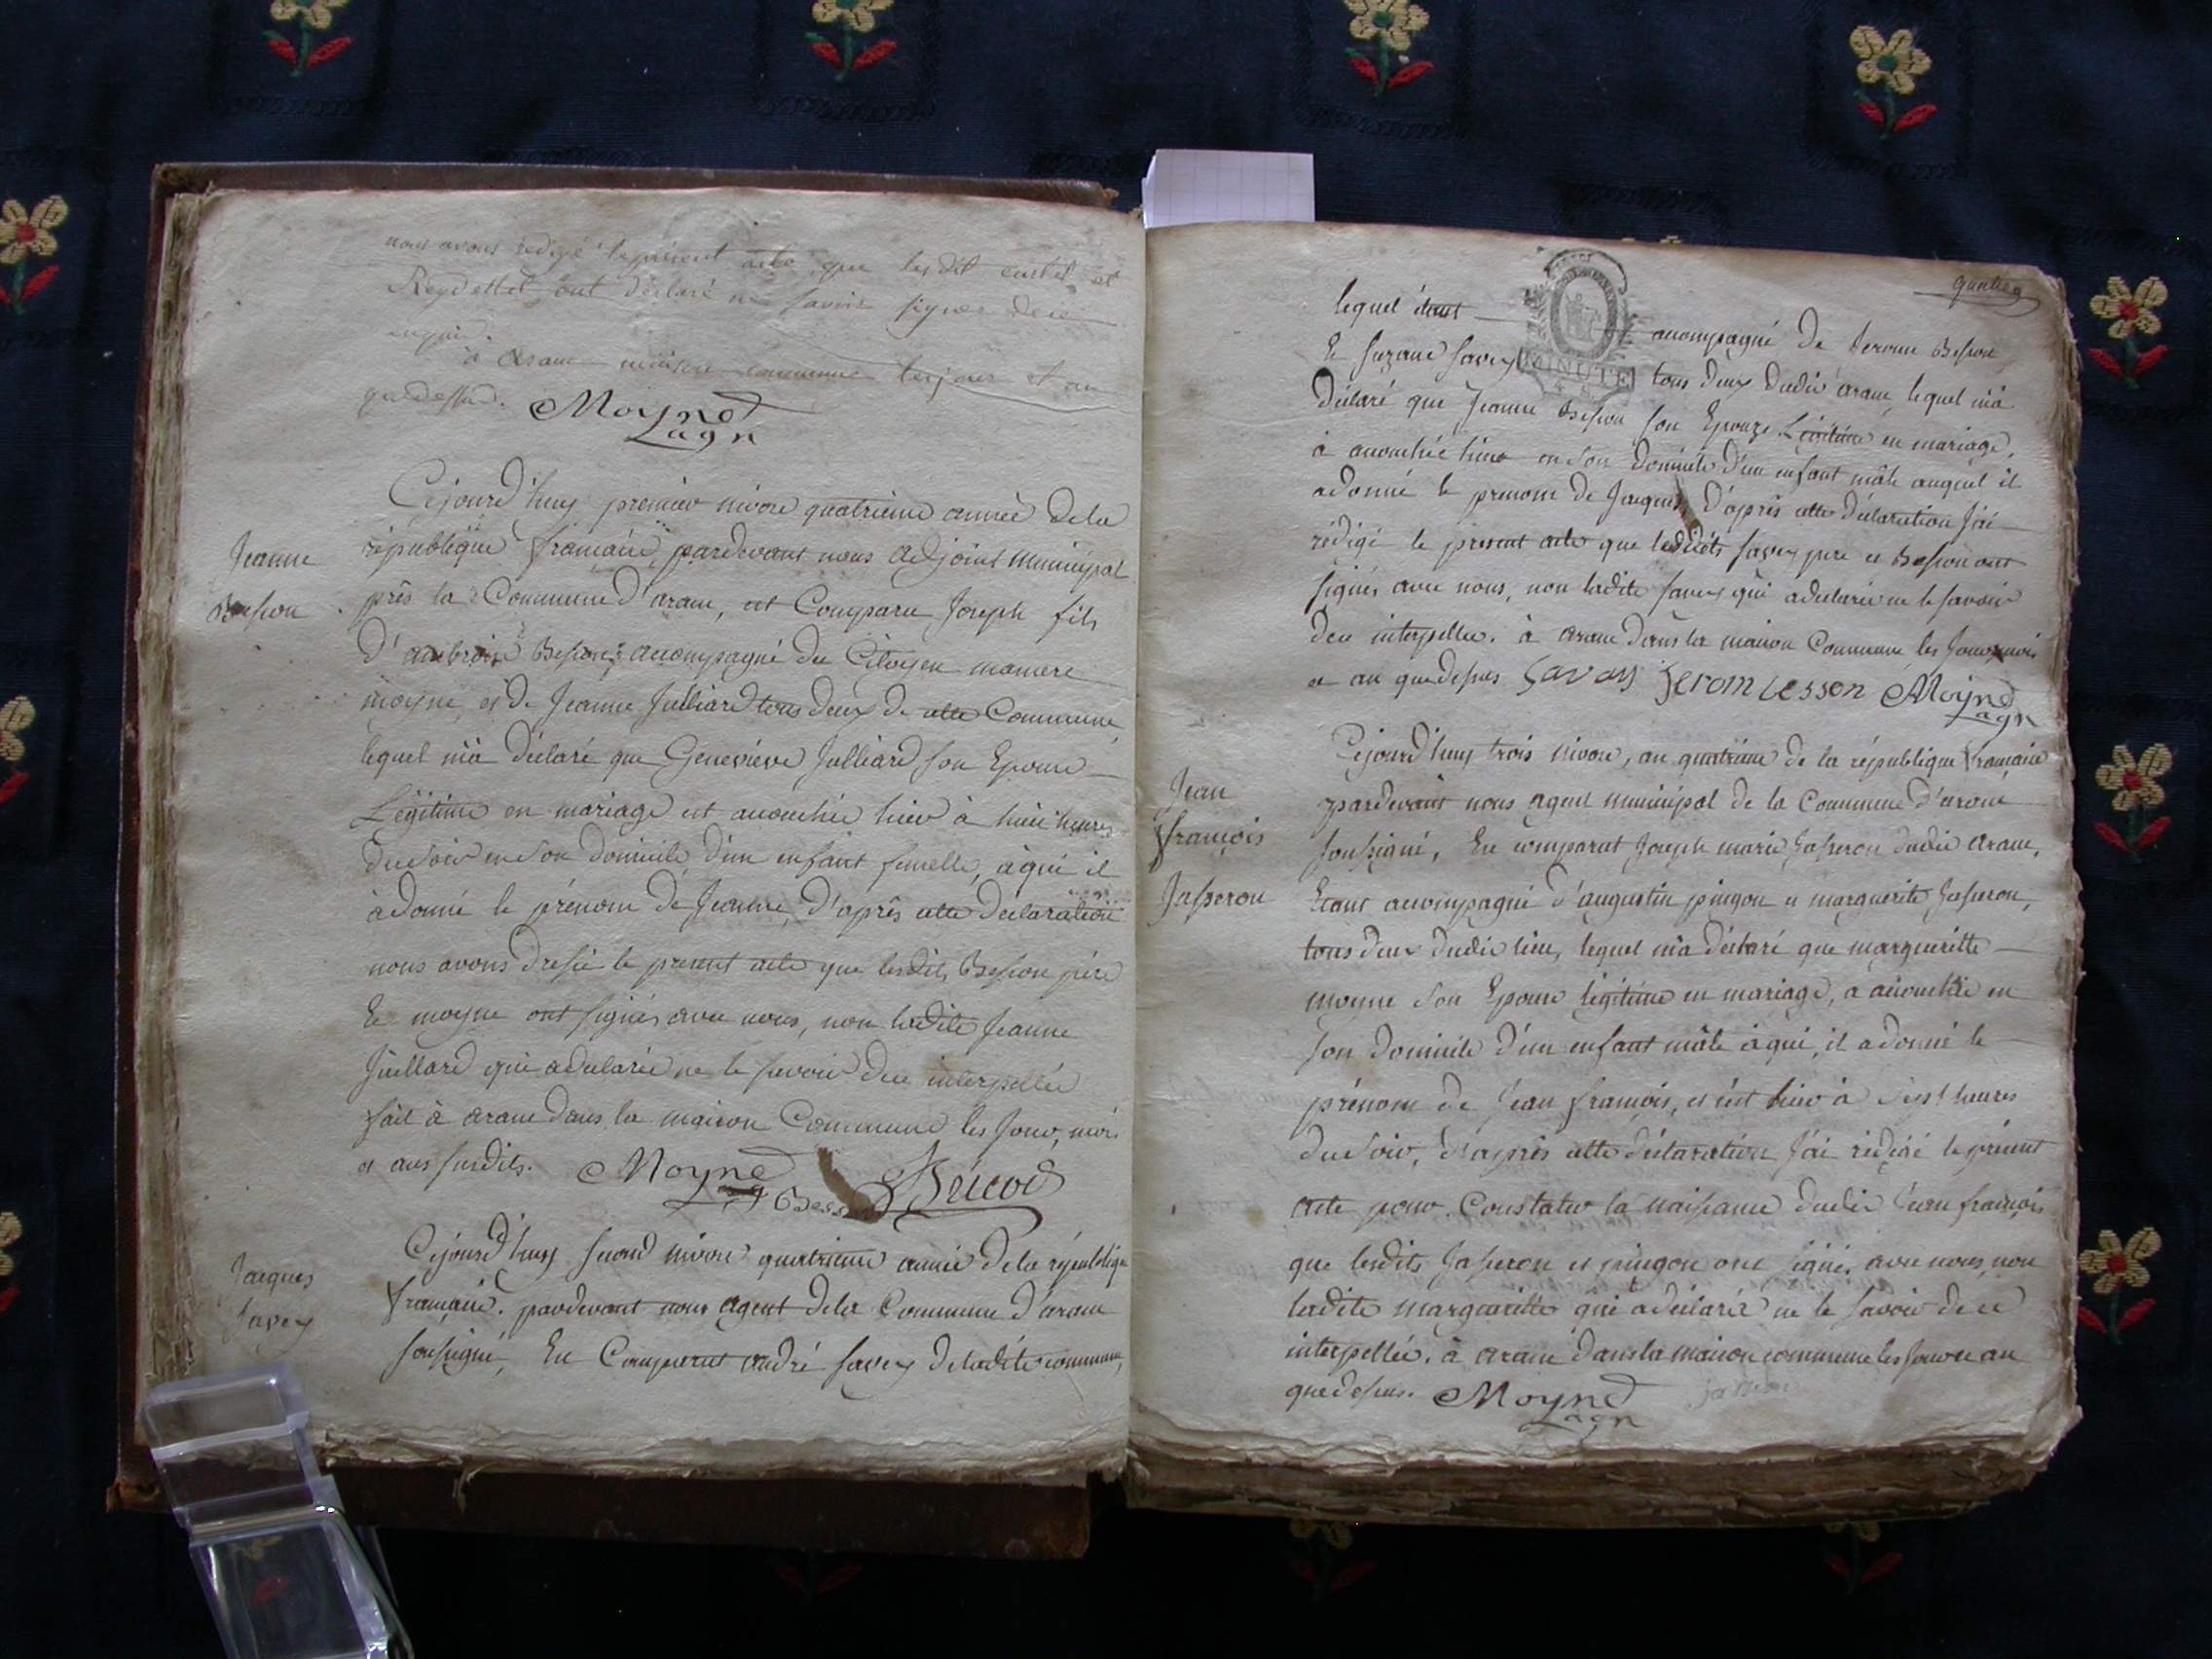 nous avons rédigé le présent acte que lesdit et
Reydellet ont déclaré ne savoir signer de ce
enquis.
à aranc maison commune les jour et an
que dessus. Moyne
agn
Cejourd'huy premier nivose quatrieme année de la
Jeanne
république française, pardevant nous adjoint municipal
Besson
près la Commune d'aranc, est Comparu Joseph fils
d'ambroise Besson, accompagné du Citoyen
moyne, et de Jeanne Julliard tous deux de cette Commune,
lequel m'à déclaré que Geneviève Julliard son Epouse
Légitime en mariage est accouchée hier à huit heures
du soir en son domicile d'un enfant femelle, à qui il
à donné le prénom de Jeanne, d'après cette déclaration
nous avons dressé le present acte que lesdits Besson père
Et moyne ont signés avec nous, non ladite Jeanne
Juillard qui a declarée ne le savoir de ce interpellée
fait à aranc dans la maison Commune les Jour, mois
et ans susdits. Moyne Bess
Cejourd'huy second nivose quatrieme année de la république
Jacques
Savey
française. pardevant nous agent de la Commune d'aranc
soussigné, Est Comparut andré Savey de ladite commune,
quatre
lequel étant accompagné de Jerome Besson
Et Suzane Savey tous deux dudit aranc, lequel m'à
MINUTE
déclaré que Jeanne Besson son Epouze Légitime en mariage,
à accouchée hier en son domicile d'un enfant mâle auquel il
a donné le prenom de Jacques, D'après cette déclaration j'ai
rédigé le present acte que lesdits Savey pere et Besson ont
signés avec nous, non ladite Savey qui a declarée ne le savoir
de ce interpellée. à aranc dans la maison Commune les Jour, mois
et an que dessus Savay Jerom besson Moyne
agn
Cejourd'huy trois nivose, an quatrieme de la république française
Jean
françois
Jasseron
pardevant nous agent municipal de la Commune d'aranc
soussigné, Est comparut Joseph marie Jasseron dudit aranc,
Etant accompagné d'augustin pingon et marguerite Jasseron,
tous deux dudit lieu, lequel m'a déclaré que margueritte
moyne son Epouse légitime en mariage, a accouchée en
son domicile d'un enfant mâle à qui, il a donné le
prénom de Jean françois, et c'est hier à sept heures
du soir, d'après cette déclaration j'ai rédigé le présent
acte pour Constater la naissance dudit Jean françois
que lesdits Jasseron et pingon ont signé, avec nous, non
ladite margueritte qui a déclarée ne le savoir de ce
interpellée. à aranc dans la maison commune les jour et an
que dessus. Moyne
agn